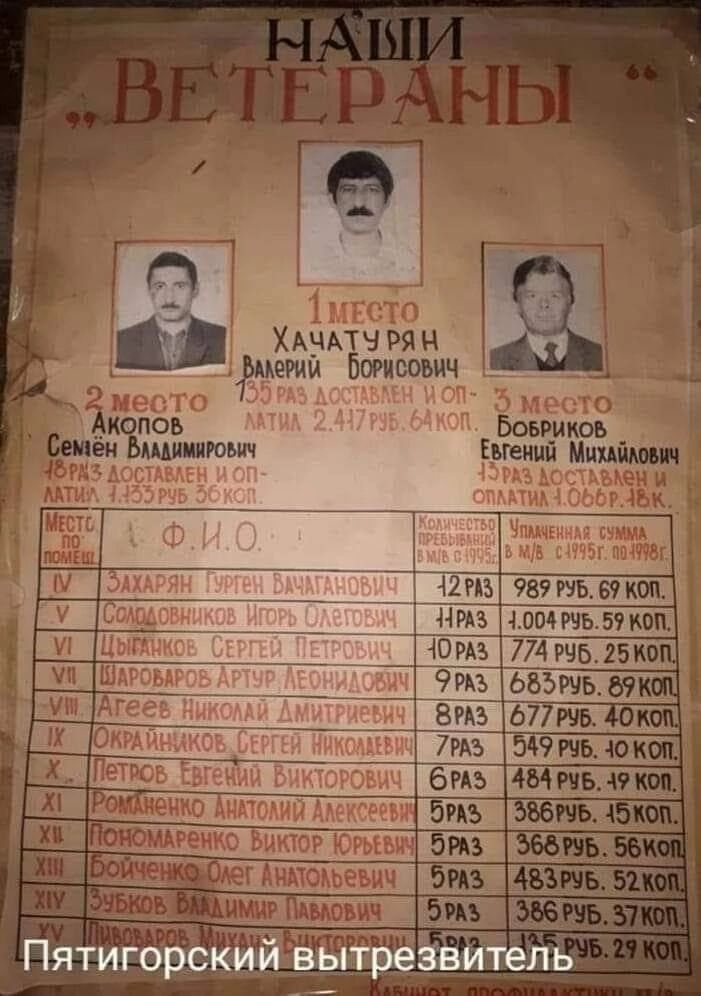 НАШИ
„ВЕТЕРАНЫ“
1 место
ХАЧАТУРЯН
ВАЛЕРИЙ БОРИСОВИЧ
135 РАЗ ДОСТАВЛЕН И ОП-
ЛАТИЛ 2.417 РУБ. 64 КОП.
2 место
АКОПОВ
СЕМЁН ВЛАДИМИРОВИЧ
18 РАЗ ДОСТАВЛЕН И ОП-
ЛАТИЛ 1.133 РУБ 36 КОП.
3 место
БОБРИКОВ
ЕВГЕНИЙ МИХАЙЛОВИЧ
13 РАЗ ДОСТАВЛЕН И
ОПЛАТИЛ 1.066 Р. 18 К.
МЕСТО ПО ПОМЕЩ. Ф.И.О. КОЛИЧЕСТВО ПРЕБЫВАНИЙ В М/В С 1995г. УПЛАЧЕННАЯ СУММА В М/В С 1995г. ПО 1998г.
IV ЗАХАРЯН ГУРГЕН ВАЧАГАНОВИЧ 12 РАЗ 989 РУБ. 69 КОП.
V СОЛОДОВНИКОВ ИГОРЬ ОЛЕГОВИЧ 11 РАЗ 1.004 РУБ. 59 КОП.
VI ЦЫГАНКОВ СЕРГЕЙ ПЕТРОВИЧ 10 РАЗ 774 РУБ. 25 КОП.
VII ШАРОВАРОВ АРТУР ЛЕОНИДОВИЧ 9 РАЗ 683 РУБ. 89 КОП.
VIII АГЕЕВ НИКОЛАЙ ДМИТРИЕВИЧ 8 РАЗ 677 РУБ. 40 КОП.
IX ОКРАЙНИКОВ СЕРГЕЙ НИКОЛАЕВИЧ 7 РАЗ 549 РУБ. 10 КОП.
X ПЕТРОВ ЕВГЕНИЙ ВИКТОРОВИЧ 6 РАЗ 484 РУБ. 19 КОП.
XI РОМАНЕНКО АНАТОЛИЙ АЛЕКСЕЕВИЧ 5 РАЗ 386 РУБ. 15 КОП.
XII ПОНОМАРЕНКО ВИКТОР ЮРЬЕВИЧ 5 РАЗ 368 РУБ. 56 КОП
XIII БОЙЧЕНКО ОЛЕГ АНАТОЛЬЕВИЧ 5 РАЗ 483 РУБ. 52 КОП.
XIV ЗУБКОВ ВЛАДИМИР ПАВЛОВИЧ 5 РАЗ 386 РУБ. 37 КОП.
XV ПИВОВАРОВ МИХАИЛ ВИКТОРОВИЧ 5 РАЗ 135 РУБ. 29 КОП.
Пятигорский вытрезвитель
КАБИНЕТ ПРОФИЛАКТИКИ М/В